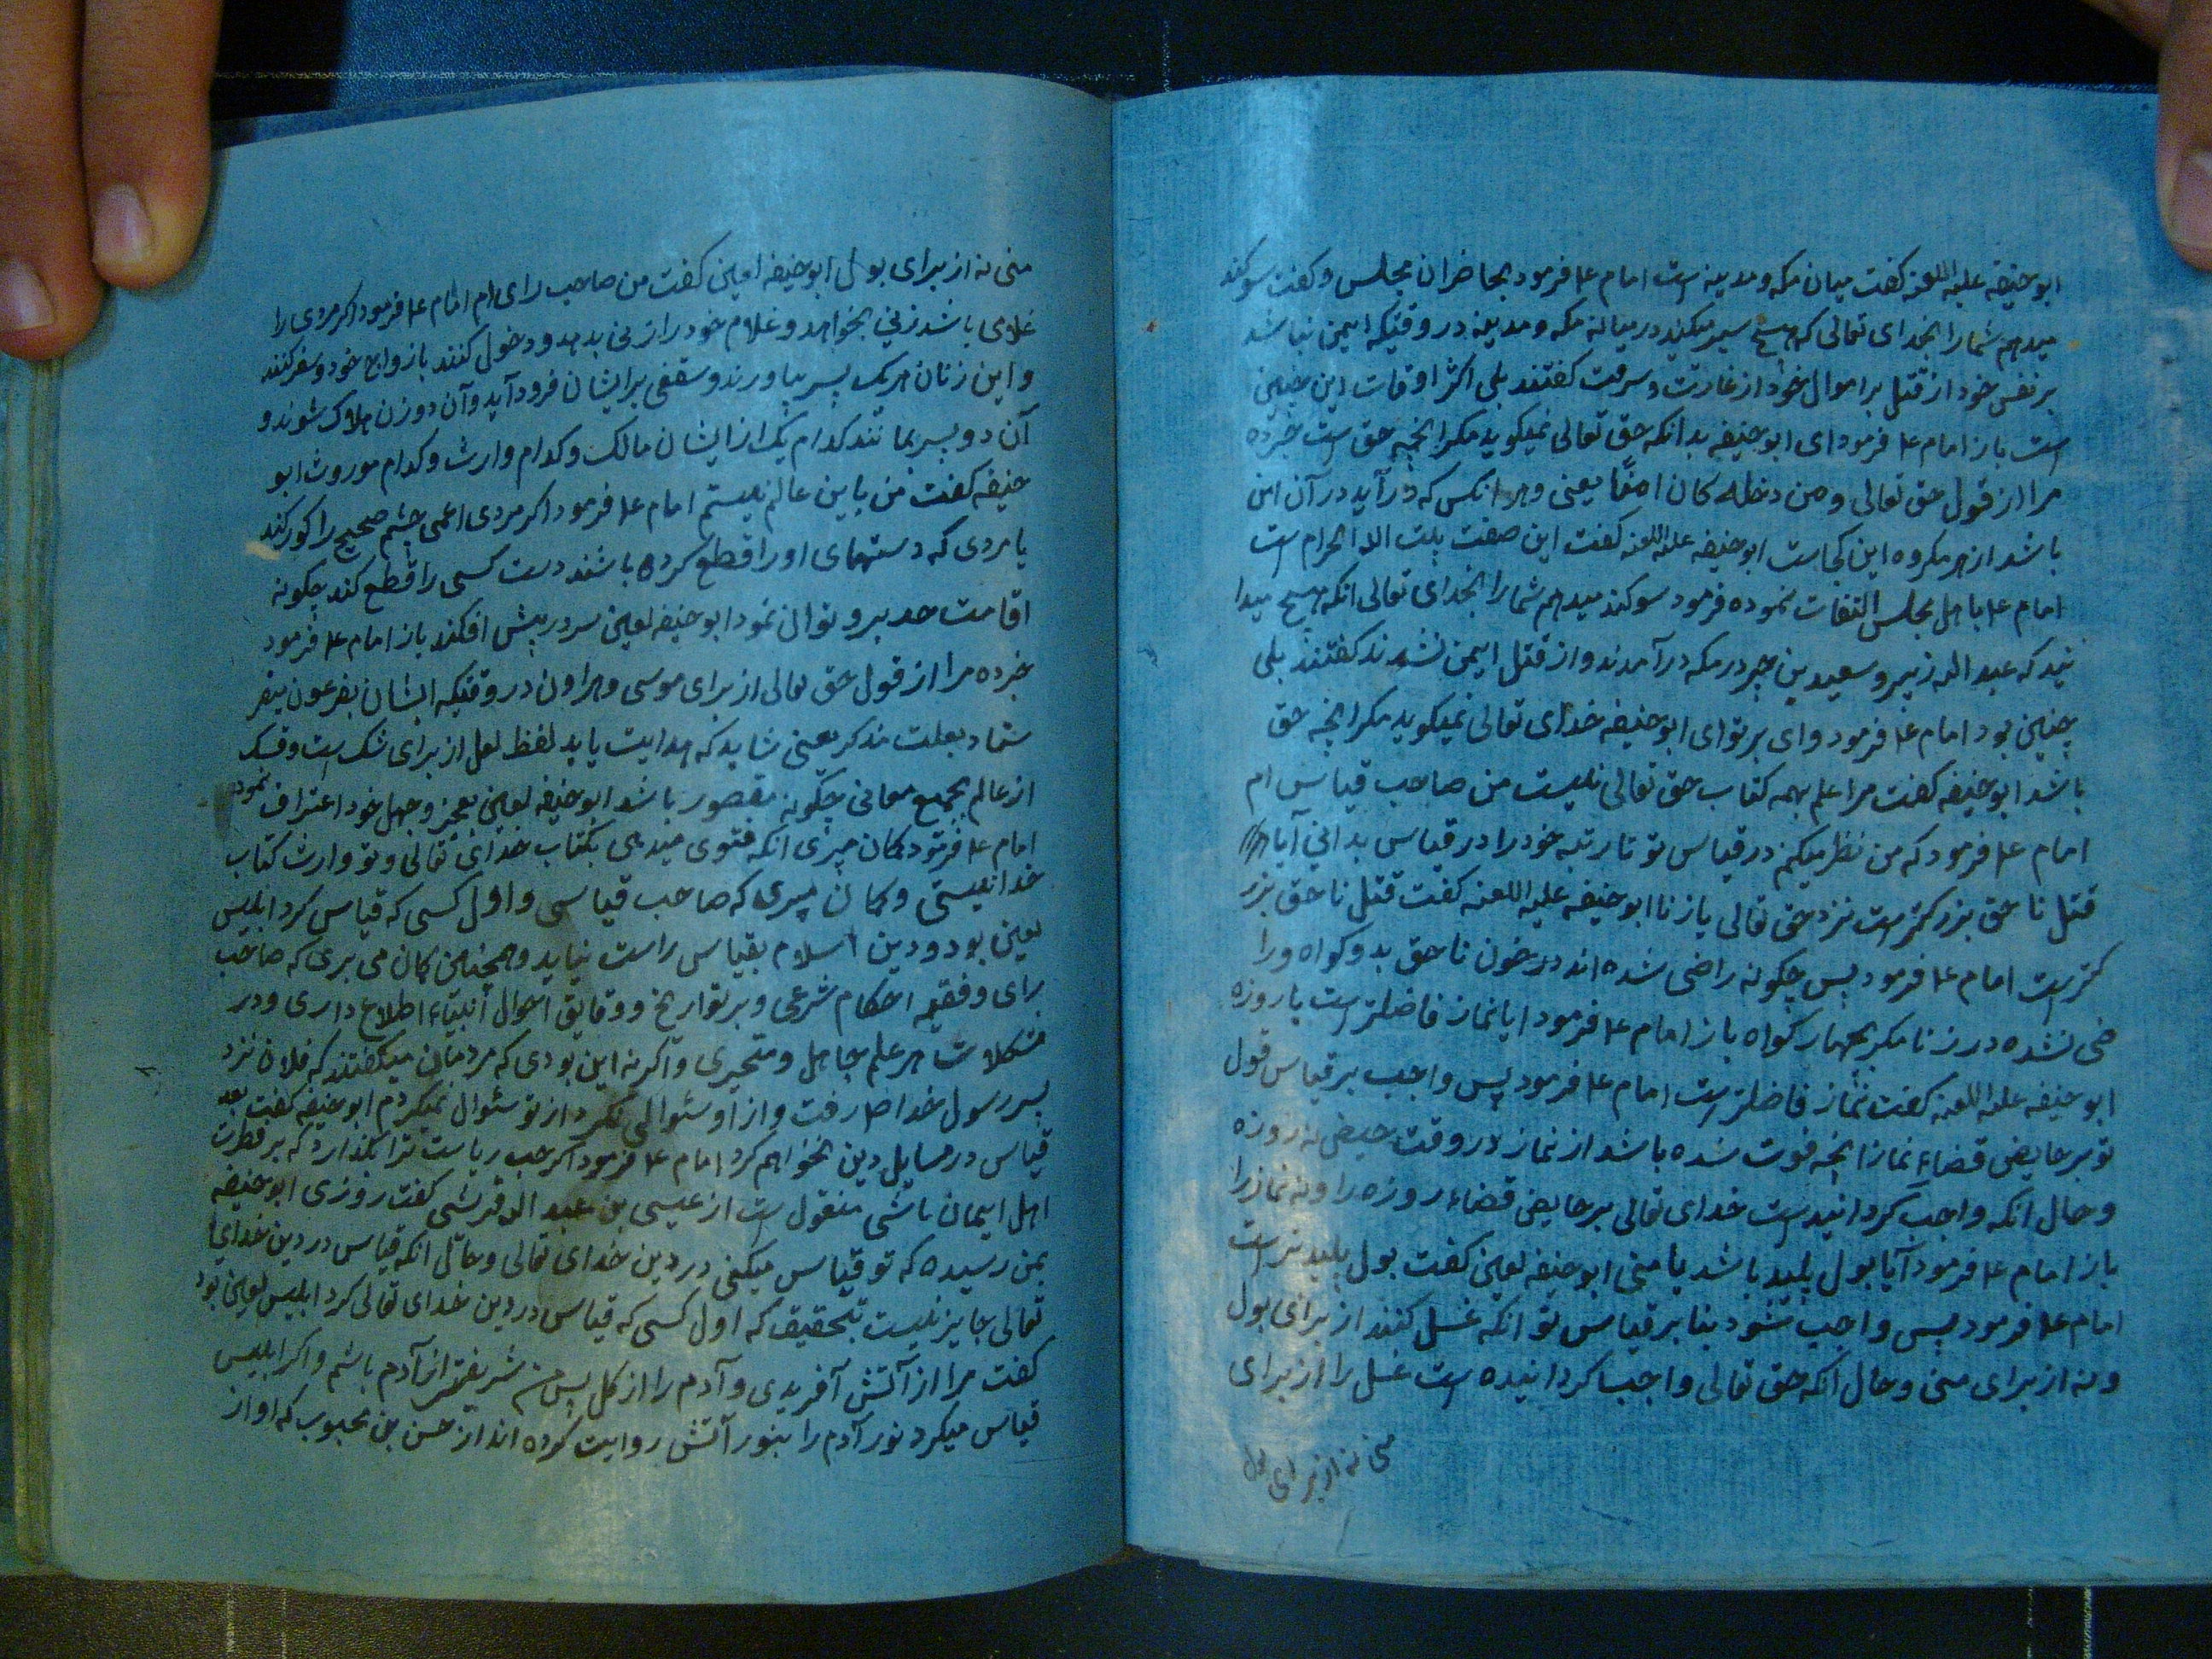 ابو حنیفه علیه اللعنه کفت میان مکه و مدینه است امام ع فرمود بحاضران مجلس و کفت سوکند
میدهم شما را بخدای تعالی که هیچ سیر میکنید در میانه مکه و مدینه در وقتیکه ایمن نباشد
بر نفس خود از قتل بر اموال خود از غارت و سرقت کفتند بلی اکثر اوقات این چنین
است باز امام ع فرمود ای ابو حنیفه بدانکه حق تعالی نمیکوید مکر انچه حق است خبر ده
مرا از قول حق تعالی و من دخله کان امنًا یعنی و هر انکس که در آید در آن امن
باشد از هر مکروه این کجاست ابو حنیفه علیه اللعنه کفت این صفت بیت الله الحرام است
امام ع باهل مجلس التفات نموده فرمود سوکند میدهم شما را بخدای تعالی انکه هیچ میدا
نید که عبد الله زبیر و سعید بن جبر در مکه در آمدند و از قتل ایمن نشدند کفتند بلی
چنین بود امام ع فرمود وای بر تو ای ابو حنیفه خدای تعالی نمیکوید مکر انچه حق
باشد ابو حنیفه کفت مرا علم بهمه کتاب حق تعالی نیست من صاحب قیاس ام
امام ع فرمود که من نظر میکنم در قیاس تو تا رتبه خود را در قیاس بدانی آیا
قتل نا حق بزرکتر است نزد حق تعالی یا زنا ابو حنیفه علیه اللعنه کفت قتل نا حق بزر
کتر است امام ع فرمود پس چکونه راضی شده اند در خون نا حق بدو کواه و را
ضی نشده در زنا مکر بچهار کواه باز امام ع فرمود ایا نماز فاضلتر است یا روزه
ابو حنیفه علیه اللعنه کفت نماز فاضلتر است امام ع فرمود پس واجب بر قیاس قول
تو بر حایض قضاء نماز انچه فوت شده باشد از نماز در وقت حیض نه روزه
و حال انکه واجب کردانید است خدای تعالی بر حایض قضاء روزه را و نه نماز را
باز امام ع فرمود آیا بول پلید باشد یا منی ابو حنیفه لعین کفت بول پلید تر است
امام ع فرمود پس واجب شود بنا بر قیاس تو انکه غسل کنند از برای بول
و نه از برای منی و حال انکه حق تعالی واجب کردانیده است غسل را از برای
منی نه از برای بول
منی نه از برای بول ابو حنیفه لعین کفت من صاحب رای ام امام ع فرمود اکر مردی را
غلامی باشد زنی بخواهد و غلام خود را زنی بدهد و دخول کنند بازواج خود و سفر کنند
و این زنان هریک پسر بیاورند و سقفی بر ایشان فرود آید و آن دو زن هلاک شوند و
آن دو پسر بمانند کدام یک از ایشان مالک و کدام وارث و کدام موروث ابو
حنیفه کفت من باین عالم نیستم امام ع فرمود اکر مردی اعمی چشم صحیح را کور کند
یا مردی که دستهای او را قطع کرده باشند دست کسی را قطع کند چکونه
اقامت حد برو توان نمود ابو حنیفه لعین سر در پیش افکند باز امام ع فرمود
خبر ده مرا از قول حق تعالی از برای موسی و هراون در وقتیکه ایشان بفرعون میفر
ستاد بعلت مذکر یعنی شاید که هدایت یابد لفظ لعل از برای شک است و شک
از عالم بجمیع معانی چکونه مقصور باشد ابو حنیفه لعین بعجز و جهل خود اعتراف نمود
امام ع فرمود کمان میبری انکه فتوی میدهی بکتاب خدای تعالی و تو وارث کتاب
خدا نیستی و کمان میبری که صاحب قیاسی و اول کسی که قیاس کرد ابلیس
لعین بود و دین اسلام بقیاس راست نیاید و همچنین کمان می بری که صاحب
رای و فقیه احکام شرعی و بر تواریخ و وقایق احوال انبیاء اطلاع داری و در
مشکلات هر علم جاهل و متحیری و اکر نه این بودی که مردمان میکفتند که فلان نزد
پسر رسول خدا ص رفت و از او سئوالی نکرد از تو سئوال نمیکردم ابو حنیفه کفت بعد
قیاس در مسایل دین نخواهم کرد امام ع فرمود اکر حب ریاست ترا بکذارد که بر فطرت
اهل ایمان باشی منقول است از عیسی بن عبد الله قرشی کفت روزی ابو حنیفه
بمن رسیده که تو قیاس میکنی در دین خدای تعالی و حال انکه قیاس در دین خدای
تعالی جایز نیست بتحقیق که اول کسی که قیاس در دین خدای تعالی کرد ابلیس لعین بود
کفت مرا از آتش آفریدی و آدم را از کل پس من شریفتر از آدم باشم و اکر ابلیس
قیاس میکرد نور آدم را بنور آتش روایت کرده اند از حسن بن محبوب که او از